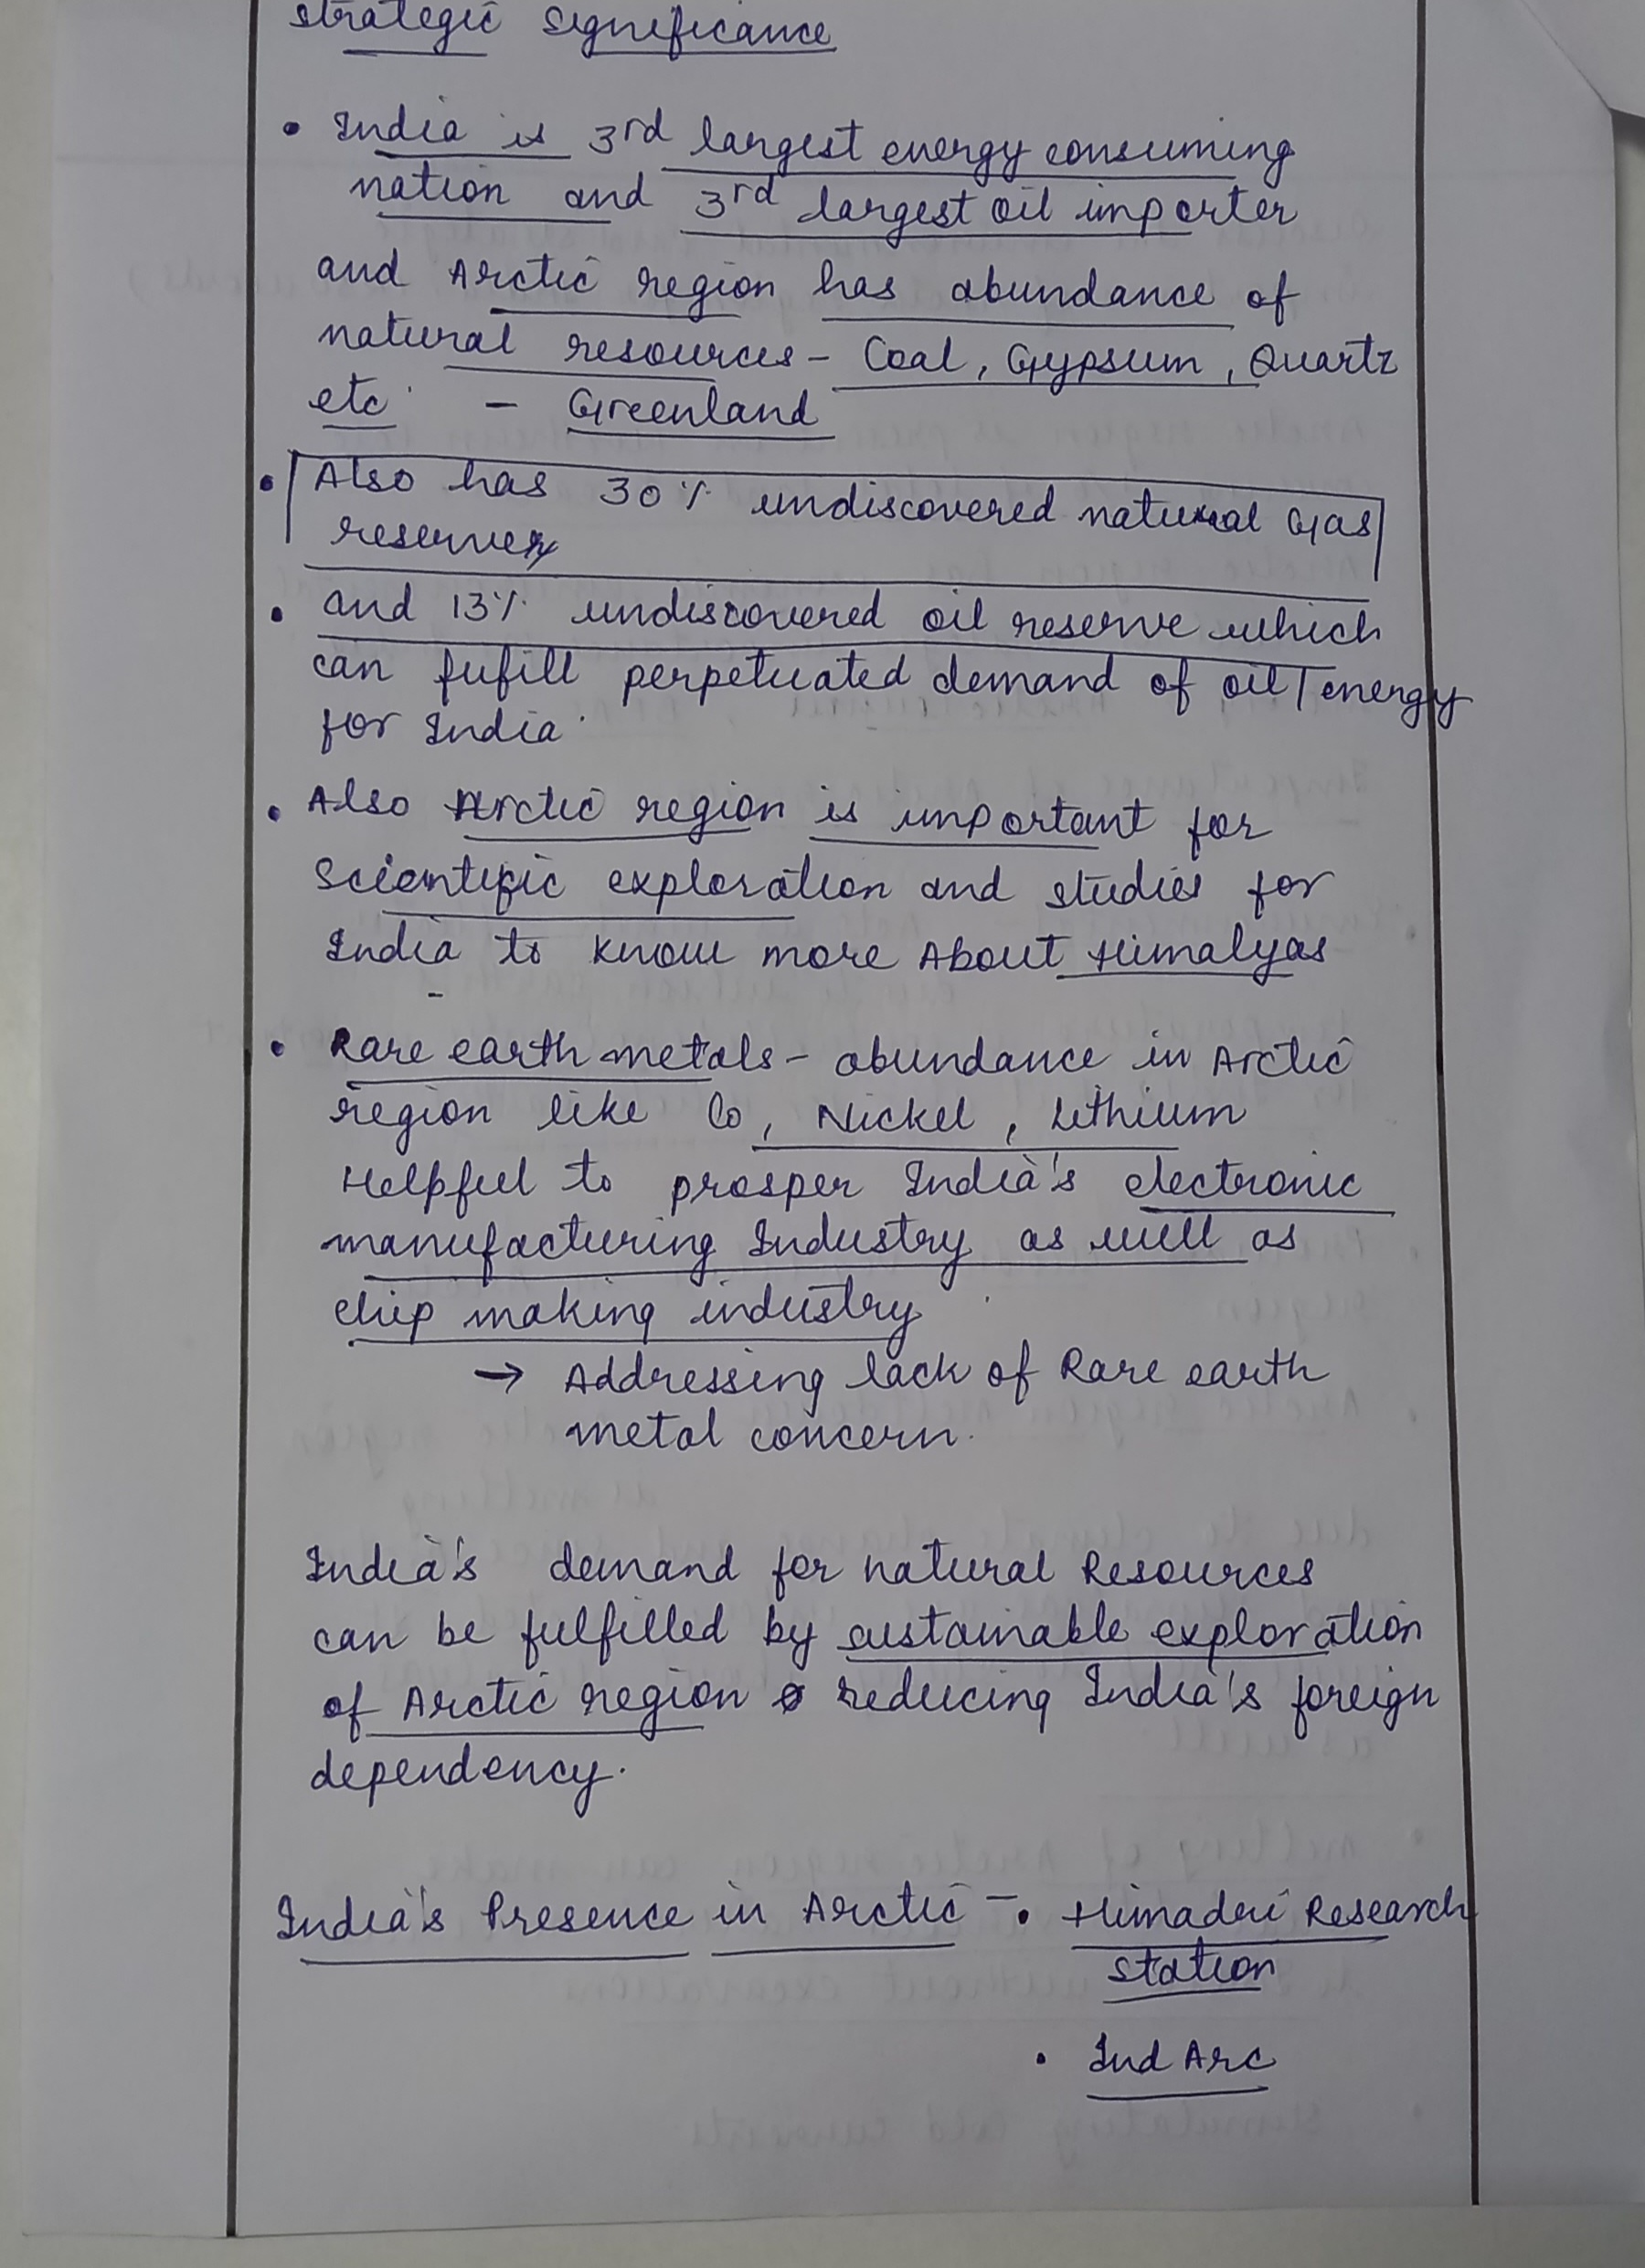 Strategic Significance
• India is 3rd largest energy consuming
nation and 3rd largest oil importer
and Arctic region has abundance of
natural resources - Coal, Gypsum, Quartz
etc. - Greenland
• Also has 30% undiscovered natural Gas
reserve
• and 13% undiscovered oil reserve which
can fufill perpetuated demand of oil/energy
for India.
• Also Arctic region is important for
Scientific exploration and studies for
India to know more About Himalyas
• Rare earth metals - abundance in Arctic
region like Co, Nickel, Lithium
Helpful to prosper India's electronic
manufacturing Industry as well as
chip making industry
→ Addressing lack of Rare earth
metal concern.
India's demand for natural Resources
can be fulfilled by sustainable exploration
of Arctic region reducing India's foreign
dependency.
India's Presence in Arctic - • Himadri Research
Station
• Ind Arc